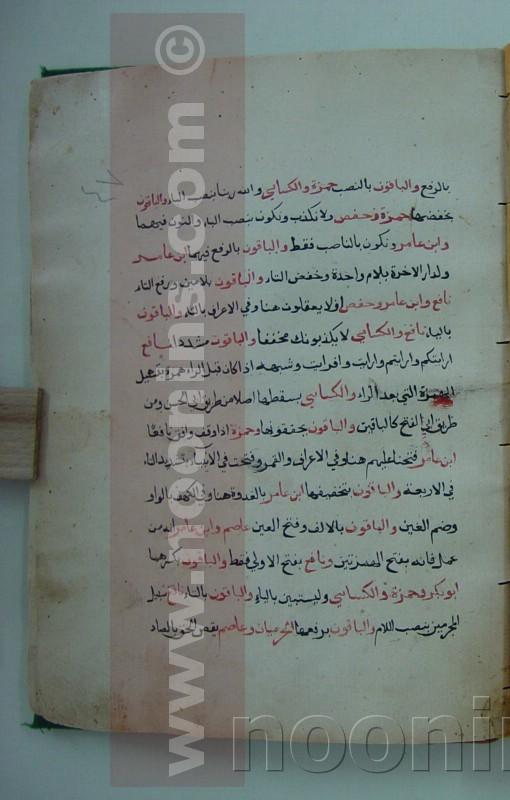 بالرفع والباقون بالنصب حمزة والكسائي والله ربنا بنصب الباء والباقون
بخفضها حمزة وحفص ولا نكذب ونكون بنصب الباء والنون فيهما
وابن عامر ونكون بالنصب فقط والباقون بالرفع فيهما ابن عامر
ولدار الاخرة بلام واحدة وخفض التاء والباقون بلامين ورفع التاء
نافع وابن عامر وحفص افلا يعقلون هنا وفي الاعراف بالتاء والباقون
بالياء نافع والكسائي لا يكذبونك مخففا والباقون مشددا نافع
ارايتكم وارايتم وارايت وافرايت وشبهه اذا كان قبل الراء همزة بتسهيل
الهمزة التي بعد الراء والكسائي يسقطها اصلا من طريق ابي الحسن ومن
طريق ابي الفتح كالباقين والباقون يحققونها وحمزة اذا وقف وافق نافعا
ابن عامر فتحنا عليهم هنا وفي الاعراف والقمر وفتحت في الانبياء بتشديد التاء
في الاربعة والباقون بتخفيفها ابن عامر بالغدوة هنا وفي الكهف بالواو
وضم الغين والباقون بالالف وفتح الغين عاصم وابن عامر انه من
عمل فانه بفتح الهمزتين ونافع بفتح الاولى فقط والباقون بكسرها
ابوبكر وحمزة والكسائي وليستبين بالياء والباقون بالتاء نافع سبيل
المجرمين بنصب اللام والباقون برفعها الحرميان وعاصم يقص الحق بالصاد
٤٧
www.nooranins.com ©
noonin